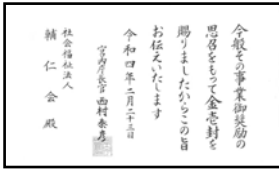 今般その事業御奨励の
思召をもって金壱封を
賜りましたからこの旨
お伝えいたします
令和四年二月二十三日
宮内庁長官 西村泰彦
社会福祉法人
輔仁会殿